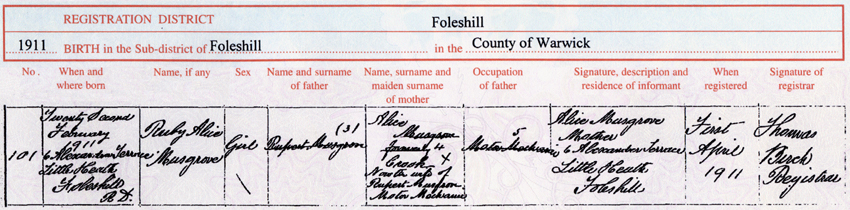 REGISTRATION DISTRICT Foleshill
1911 BIRTH in the Sub-district of Foleshill in the County of Warwick
No. When and where born Name, if any Sex Name and surname of father Name, surname and maiden surname of mother Occupation of father Signature, description and residence of informant When registered Signature of registrar
101
Twenty Second
February
1911
6 Alexander Terrace
Little Heath
Foleshill
R.D.
Ruby Alice
Musgrove
Girl
(3)
Rupert Musgrove
Alice
Musgrove
4
Crook
Now the wife of
Rupert Musgrove
Motor Mechanic
5
Motor Mechanic
Alice Musgrove
Mother
6 Alexander Terrace
Little Heath
Foleshill
First
April
1911
Thomas
Birch
Registrar